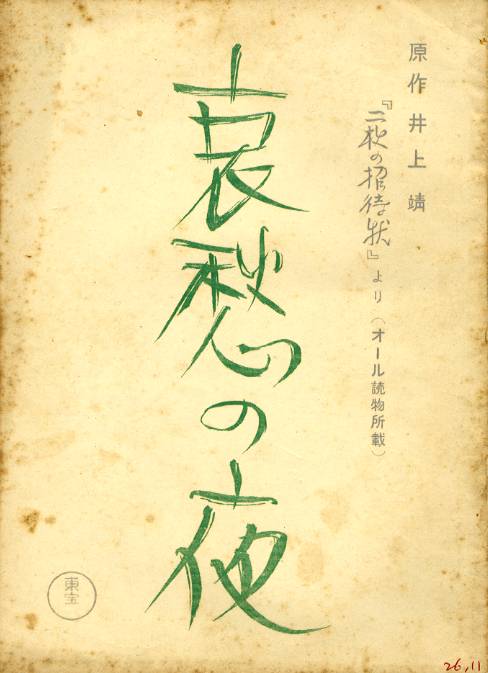 原作井上靖
『二枚の招待状』より（オール読物所載）
哀愁の夜
東宝
26,11